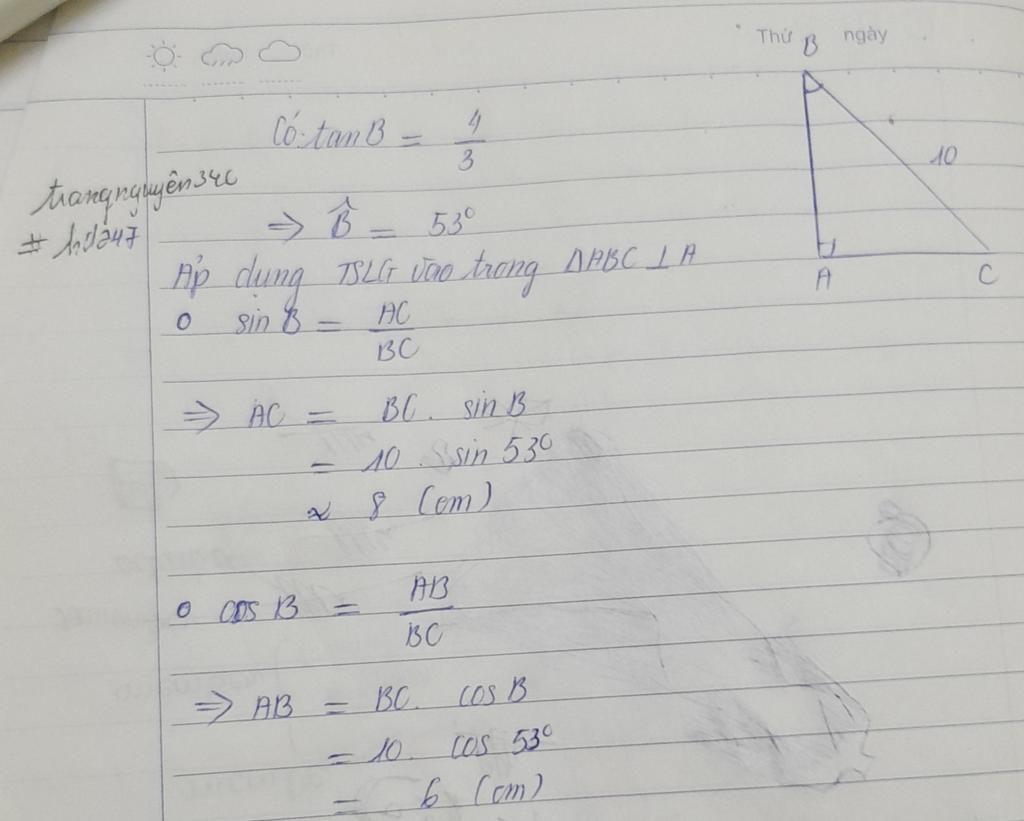 Thứ ngày
B
10
A C
Có tanB = 4/3
trangnguyên34c
⇒ B̂ = 53°
Áp dụng TSLG vào trong ΔABC ⊥ A
o sin B = AC/BC
⇒ AC = BC. sin B
= 10 . sin 53°
≈ 8 (cm)
o cos B = AB/BC
⇒ AB = BC. cos B
= 10. cos 53°
= 6 (cm)